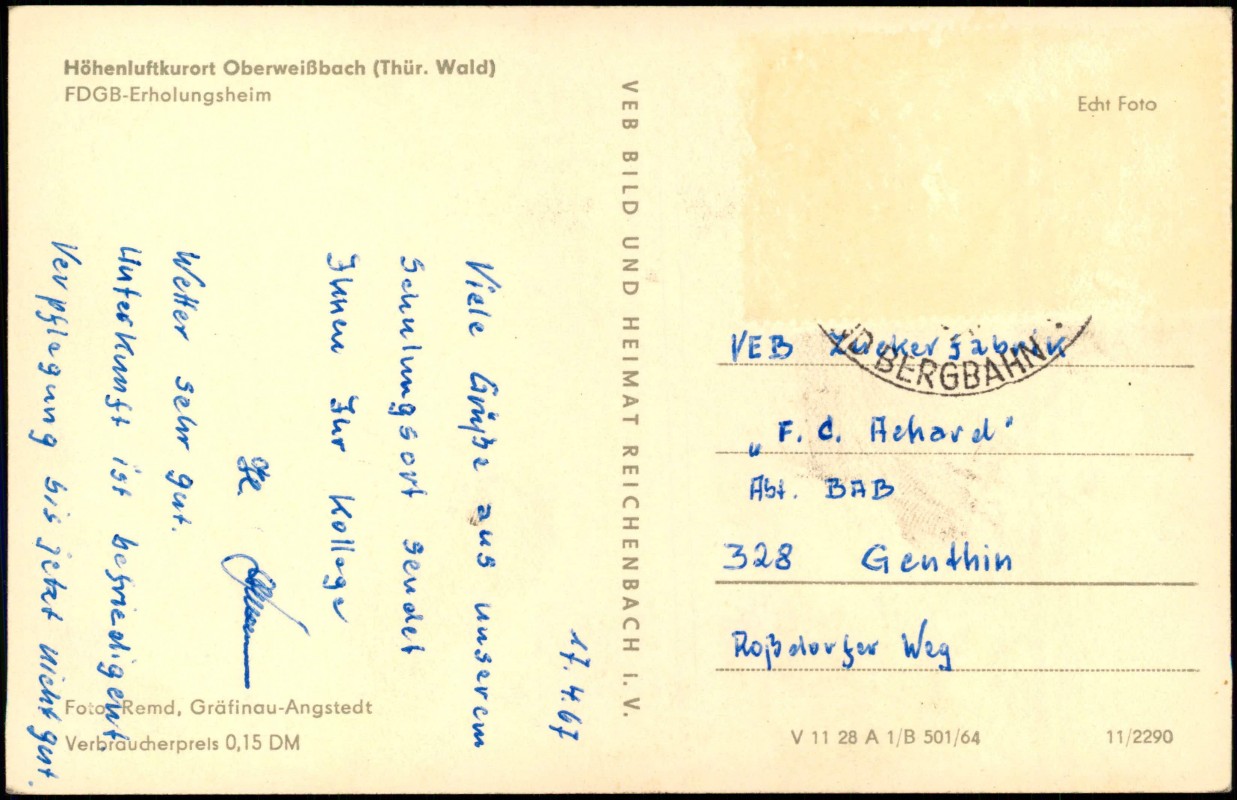 Höhenluftkurort Oberweißbach (Thür. Wald)
FDGB-Erholungsheim
17.4.67
Viele Grüße aus unserem
Schulungsort sendet
Ihnen Ihr Kollege
H.
Wetter sehr gut.
Unterkunft ist befriedigent,
Verpflegung bis jetzt nicht gut.
Foto: Remd, Gräfinau-Angstedt
Verbraucherpreis 0,15 DM
VEB BILD UND HEIMAT REICHENBACH I. V.
Echt Foto
BERGBAHN
VEB Zuckerfabrik
„F. C. Achard"
Abt. BAB
328 Genthin
Roßdorfer Weg
V 11 28 A 1/B 501/64
11/2290